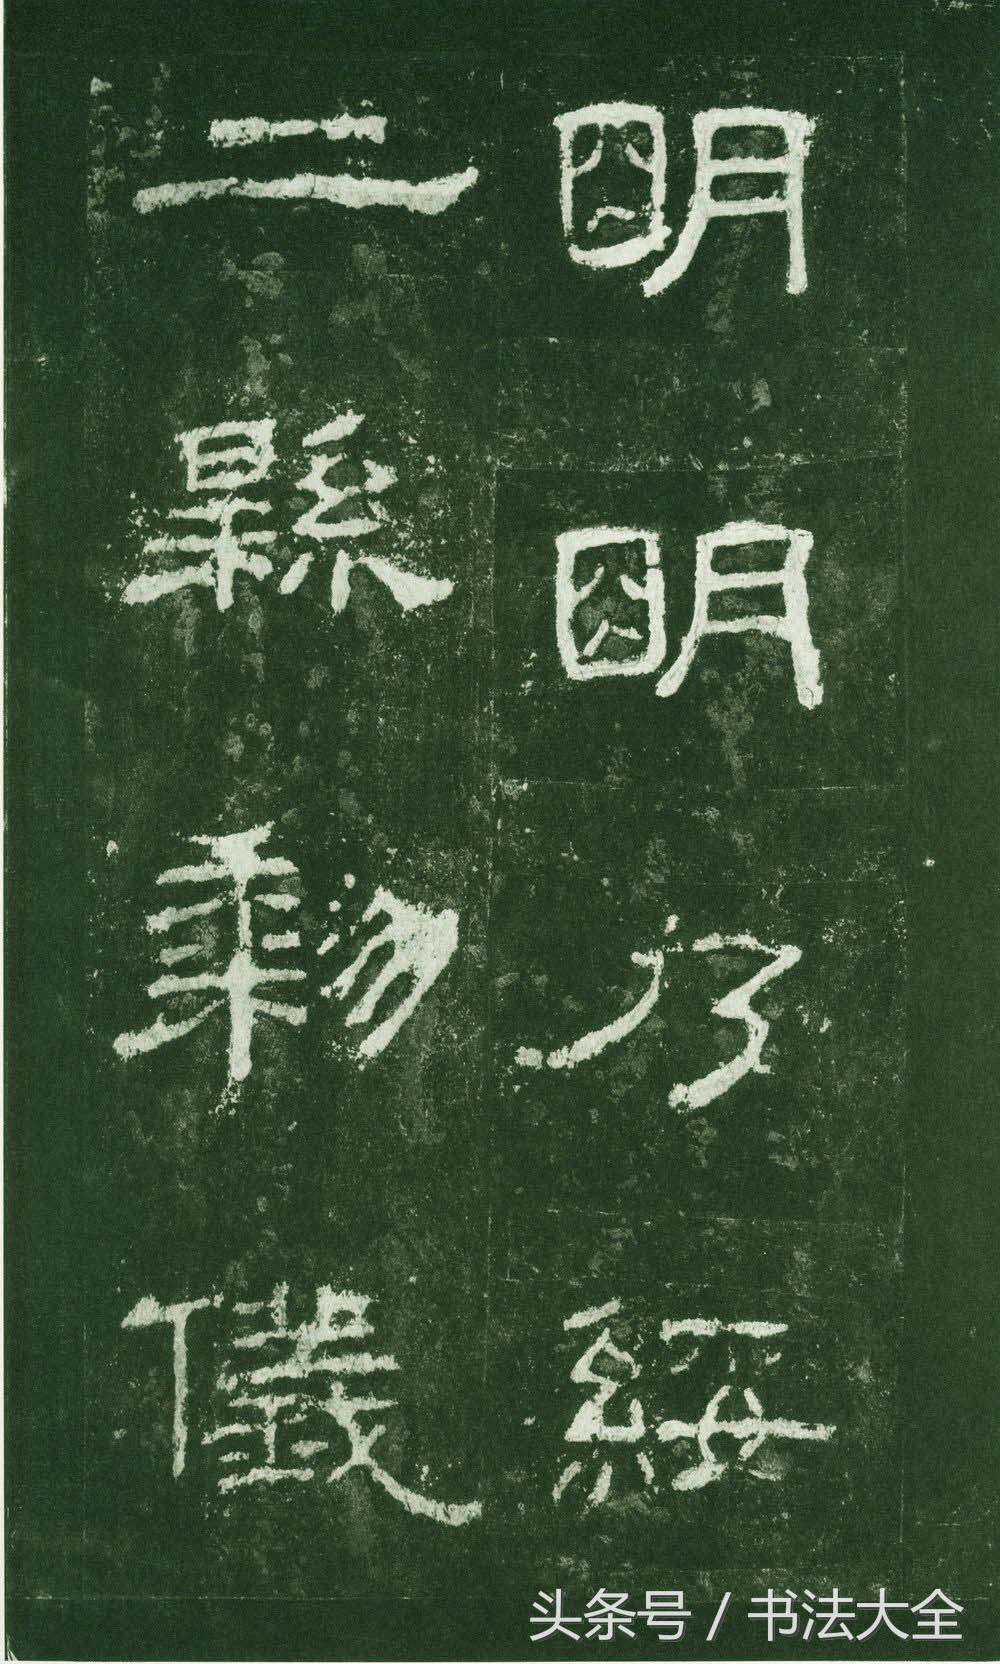 明明乃綏
二縣黎儀
头条号 / 书法大全